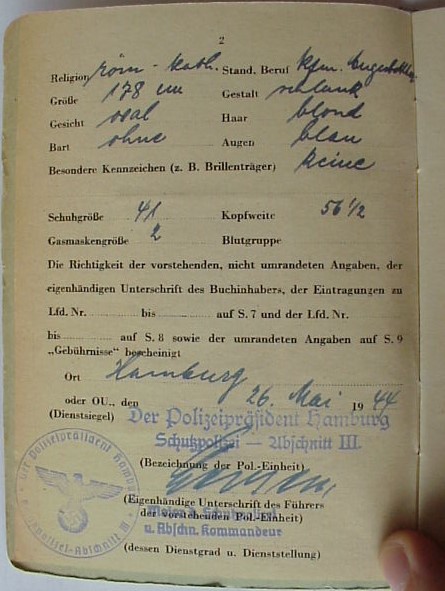 2
Religion röm - kath. Stand. Beruf kfm. Angestellter
Größe 178 cm Gestalt schlank
Gesicht oval Haar blond
Bart ohne Augen blau
Besondere Kennzeichen (z. B. Brillenträger) keine
Schuhgröße 41 Kopfweite 56 1/2
Gasmaskengröße 2 Blutgruppe
Die Richtigkeit der vorstehenden, nicht umrandeten Angaben, der
eigenhändigen Unterschrift des Buchinhabers, der Eintragungen zu
Lfd. Nr. bis auf S. 7 und der Lfd. Nr.
bis auf S. 8 sowie der umrandeten Angaben auf S. 9
„Gebührnisse" bescheinigt
Ort Hamburg
oder OU., den 26. Mai 1944
(Dienstsiegel) Der Polizeipräsident Hamburg
Schutzpolizei — Abschnitt III.
(Bezeichnung der Pol.-Einheit)
Der Polizeipräsident Hamburg
Schutzpolizei-Abschnitt III
(Eigenhändige Unterschrift des Führers
der vorstehenden Pol.-Einheit)
Major d. Schutzpolizei
u. Abschn. Kommandeur
(dessen Dienstgrad u. Dienststellung)